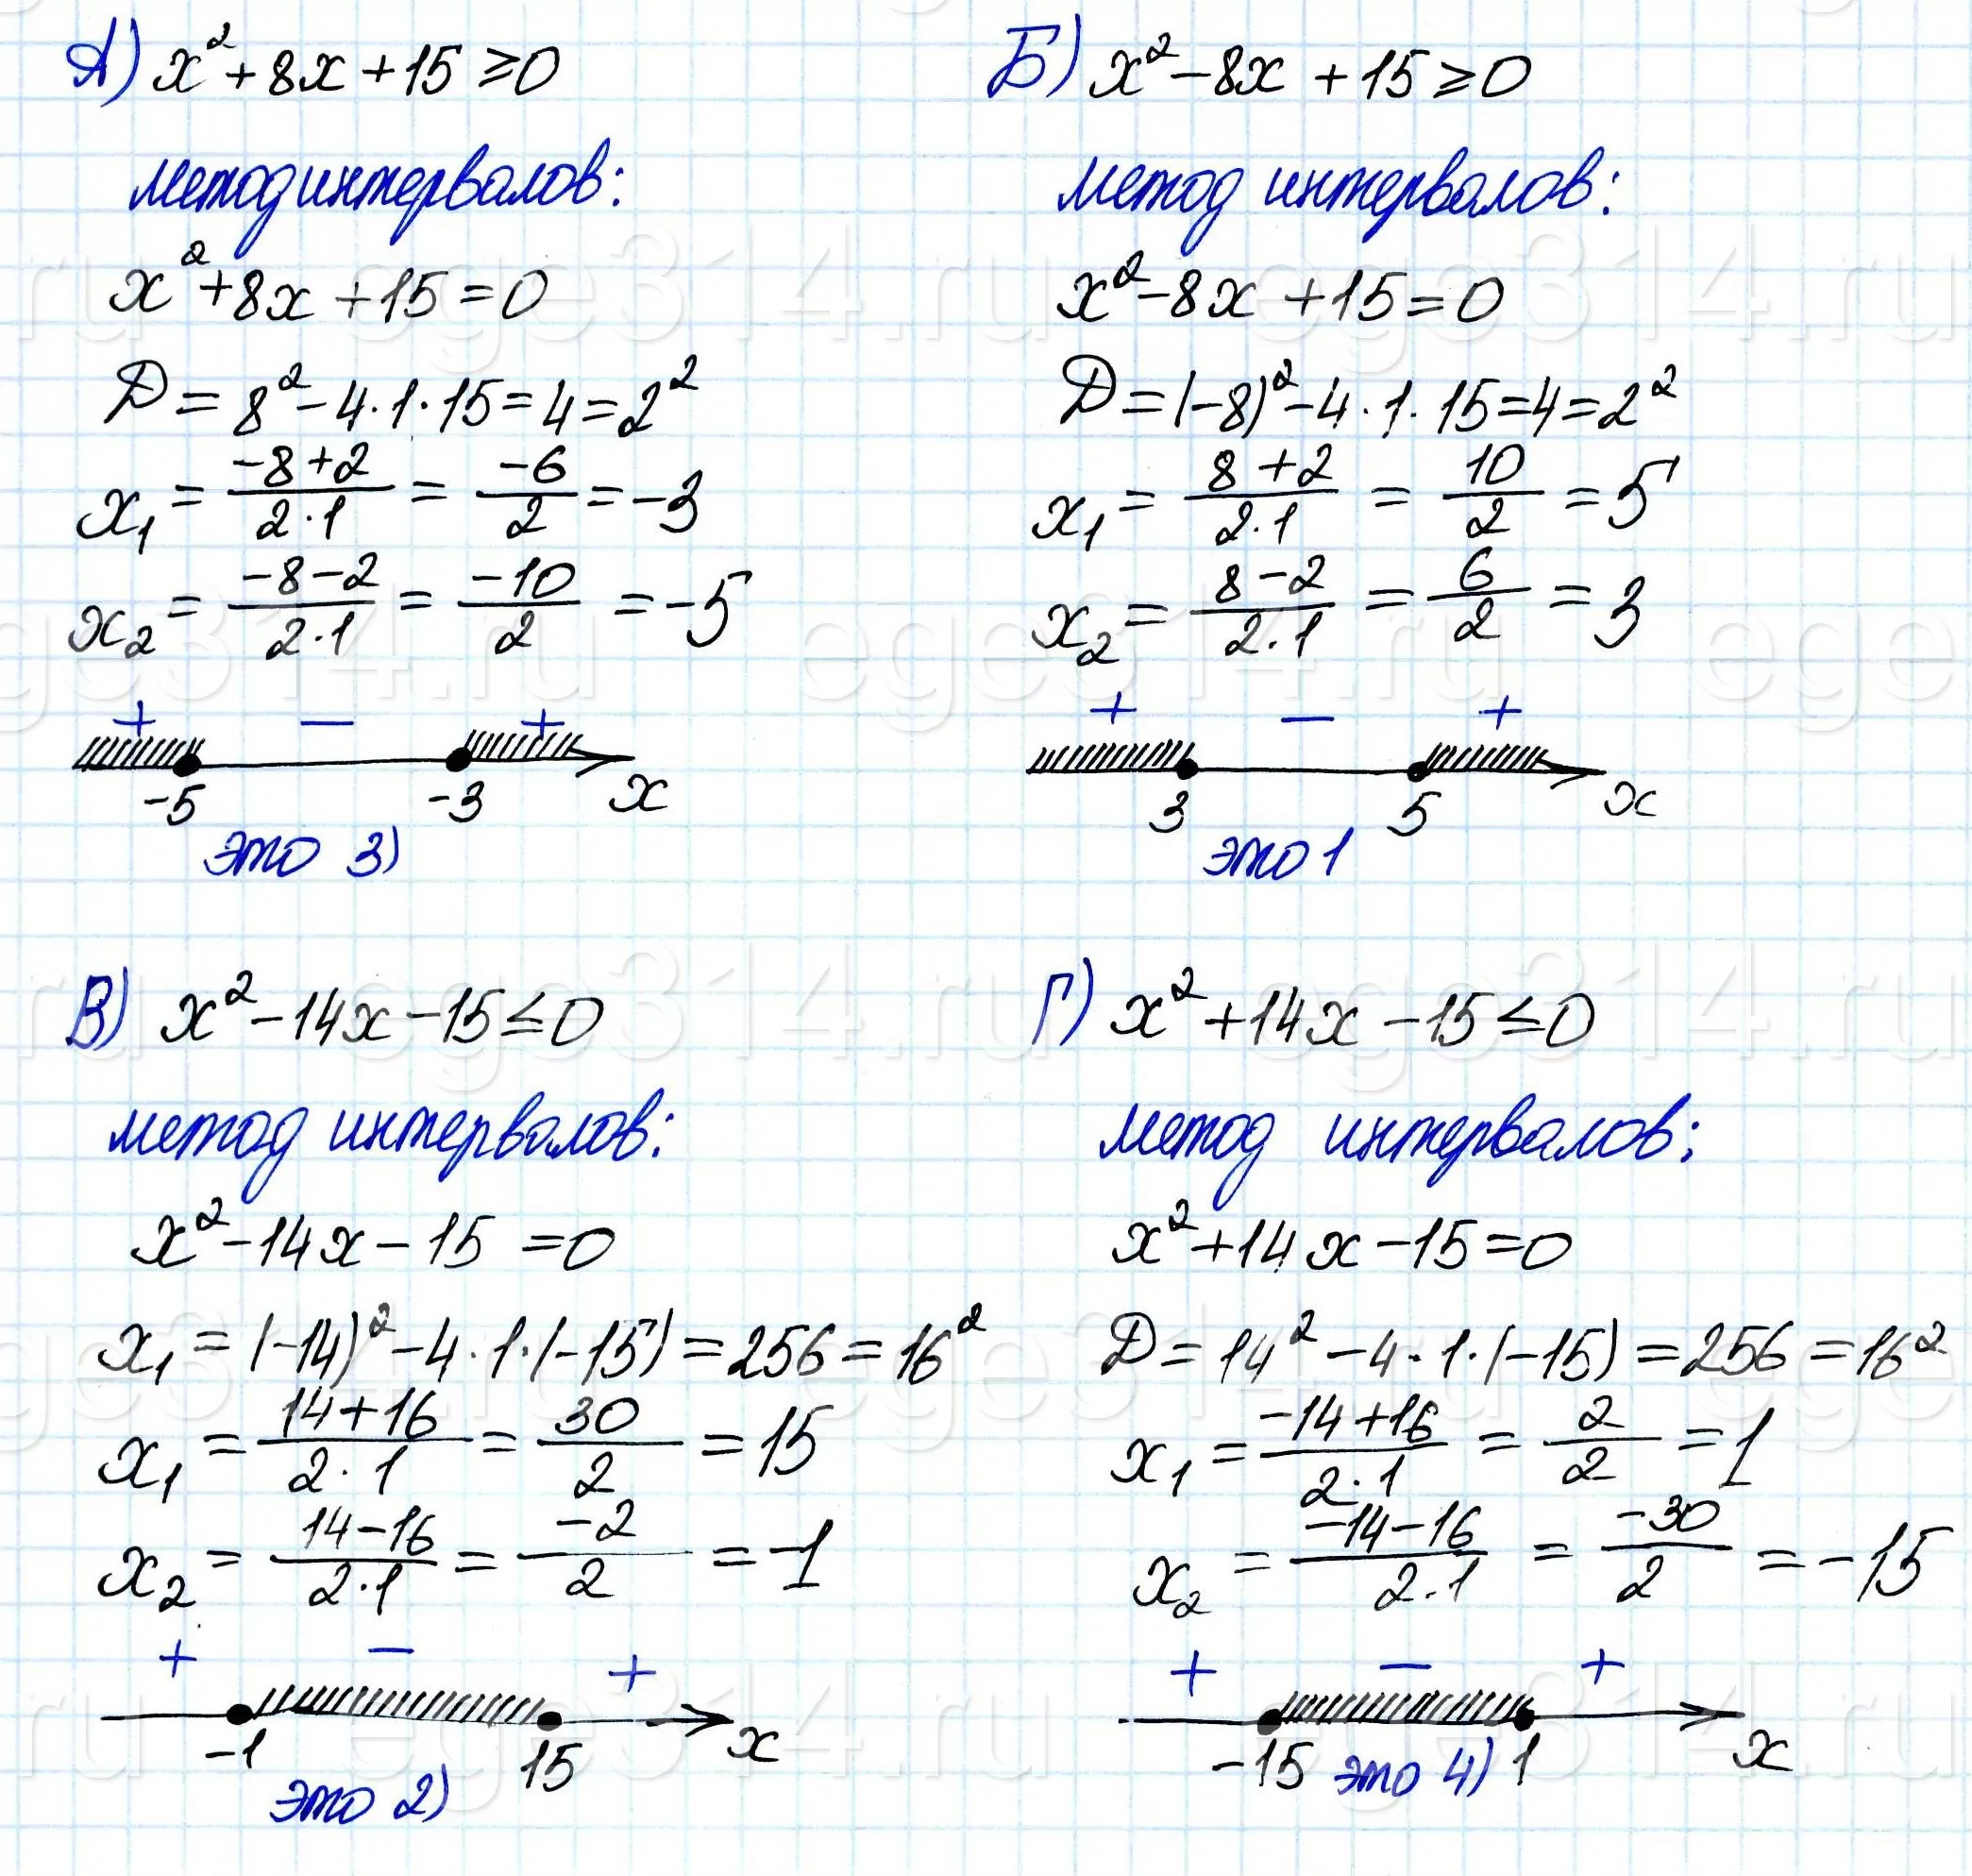 А) x² + 8x + 15 ≥ 0
метод интервалов:
x² + 8x + 15 = 0
Д = 8² − 4·1·15 = 4 = 2²
x₁ = (−8+2)/(2·1) = −6/2 = −3
x₂ = (−8−2)/(2·1) = −10/2 = −5
+ − +
−5 −3 x
это 3)
Б) x² − 8x + 15 ≥ 0
метод интервалов:
x² − 8x + 15 = 0
Д = (−8)² − 4·1·15 = 4 = 2²
x₁ = (8+2)/(2·1) = 10/2 = 5
x₂ = (8−2)/(2·1) = 6/2 = 3
+ − +
3 5 x
это 1
В) x² − 14x − 15 ≤ 0
метод интервалов:
x² − 14x − 15 = 0
x₁ = (−14)² − 4·1·(−15) = 256 = 16²
x₁ = (14+16)/(2·1) = 30/2 = 15
x₂ = (14−16)/(2·1) = −2/2 = −1
+ − +
−1 15 x
это 2)
Г) x² + 14x − 15 ≤ 0
метод интервалов:
x² + 14x − 15 = 0
Д = 14² − 4·1·(−15) = 256 = 16²
x₁ = (−14+16)/(2·1) = 2/2 = 1
x₂ = (−14−16)/(2·1) = −30/2 = −15
+ − +
−15 это 4) 1 x
ege314.ru